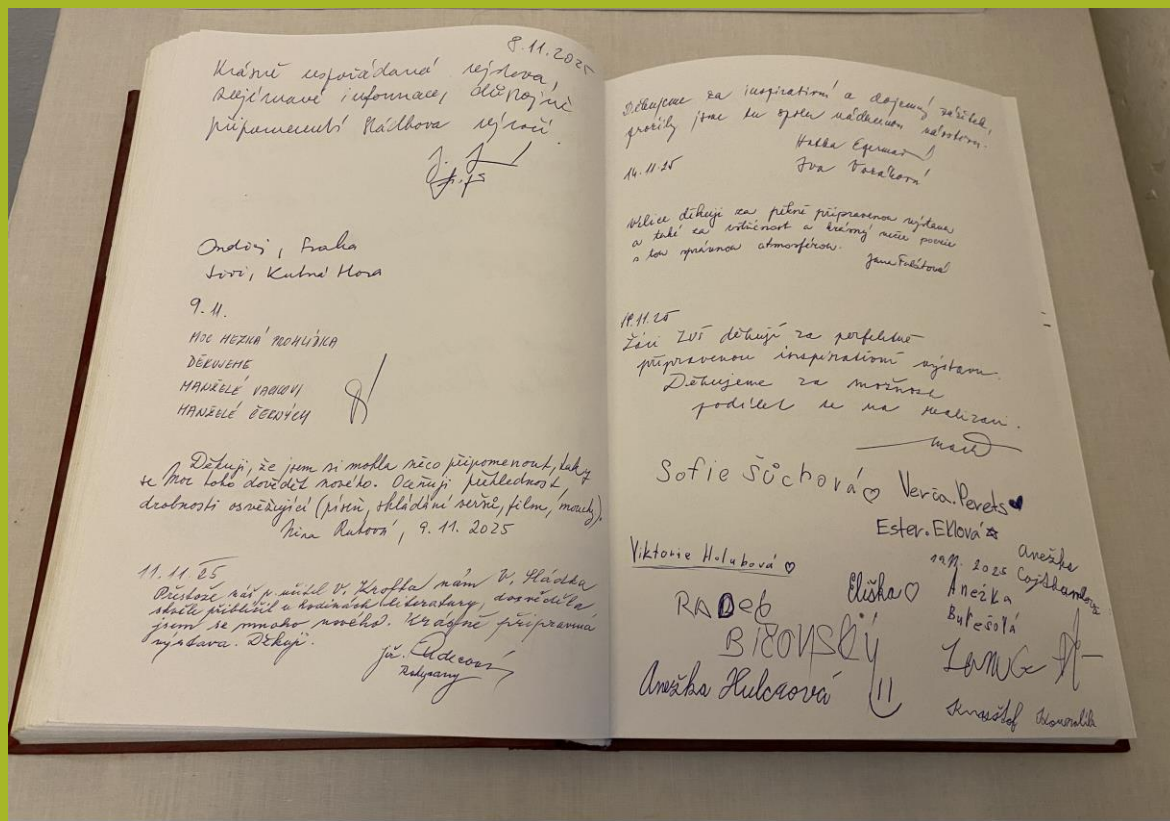 8.11.2025
Krásně uspořádaná výstava,
zajímavé informace, důstojné
připomenutí Hádkova výročí.
Ondřej, Praha
Jiří, Kutná Hora
9.11.
MOC HEZKÁ PROHLÍDKA
DĚKUJEME
MANŽELÉ
MANŽELÉ ČERNÝCH
Děkuji, že jsem si mohla něco připomenout, taky
se moc toho dovědět nového. Oceňuji přehlednost,
drobnosti osvěžující (píseň, skládání veršů, film,
Nina, 9.11.2025
11.11 25
Přestože náš p. učitel V. Krofta nám V. Hádka
skvěle přiblížil v hodinách literatury, dozvěděla
jsem se mnoho nového. Krásně připravená
výstava. Děkuji.
Rokycany
Děkujeme za inspirativní a dojemný zážitek,
prožily jsme tu spolu nádhernou
14.11.25
Velice děkuji za pěkně připravenou výstavu
a také za vstřícnost a krásný
s tou správnou atmosférou.
Jana
19.11.25
Žáci ZUŠ děkují za perfektně
připravenou inspirativní výstavu.
Děkujeme za možnost
podílet se na realizaci.
Sofie Šůchová ♡
Verča.Perets ♥
Ester.Eklová ☆
Viktorie Holubová ♡
Eliška ♡
19.11.2025
Anežka
RADEG
Anežka
BIČOVSKÝ
Anežka Hulcaová
Kryštof